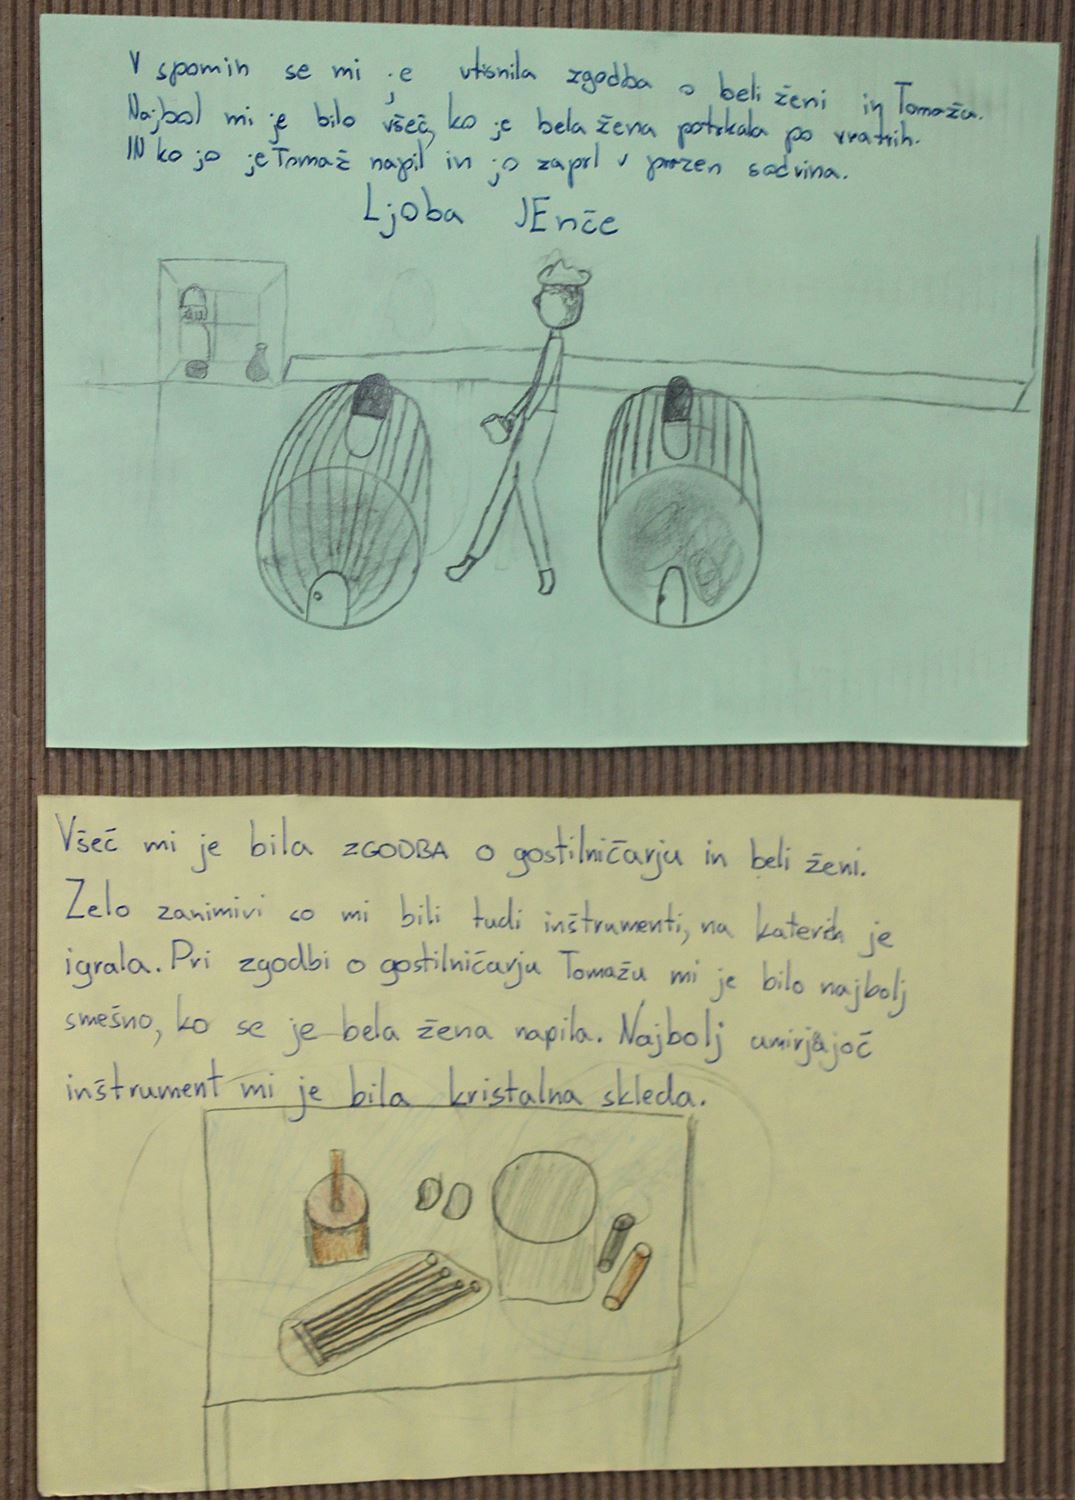 V spomin se mi je vtisnila zgodba o beli ženi in Tomažu.
Najbol mi je bilo všeč, ko je bela žena potrkala po vratih.
IN ko jo je Tomaž napil in jo zaprl v prazen sodvina.
Ljoba JEnče
Všeč mi je bila ZGODBA o gostilničarju in beli ženi.
Zelo zanimivi so mi bili tudi inštrumenti, na katerih je
igrala. Pri zgodbi o gostilničarju Tomažu mi je bilo najbolj
smešno, ko se je bela žena napila. Najbolj umirjajoč
inštrument mi je bila kristalna skleda.